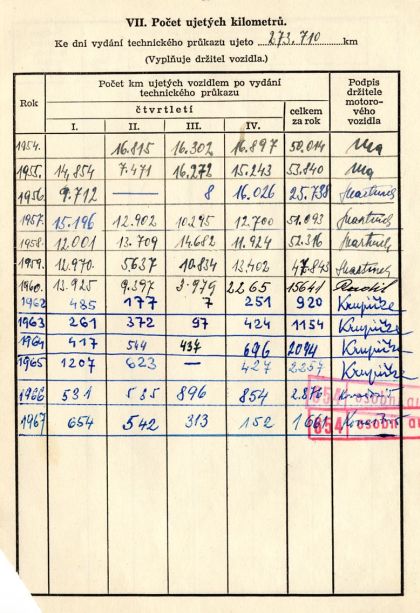 VII. Počet ujetých kilometrů.
Ke dni vydání technického průkazu ujeto 273.710 km
(Vyplňuje držitel vozidla.)
Rok Počet km ujetých vozidlem po vydání technického průkazu Podpis držitele motorového vozidla
čtvrtletí celkem za rok
I. II. III. IV.
1954. 16.815 16.302 16.897 50.014
1955. 14.854 7.471 16.272 15.243 53.840
1956. 9.712 — 8 16.026 25.738
1957. 15.196 12.902 10.295 12.700 51.093
1958. 12.001 13.709 14.682 11.924 52.316
1959. 12.970. 5.637 10.834 13.402
1960. 13.925 9.397 3.979 2265 15641
1962 485 177 7 251 920 Krupička
1963 261 372 97 424 1154 Krupička
1964 417 544 437 696 2094 Krupička
1965 1207 623 — 427 2257 Krupička
1966 531 896 854 2.876
1967 654 542 313 152 1661
654 osobní au
654 osobní au